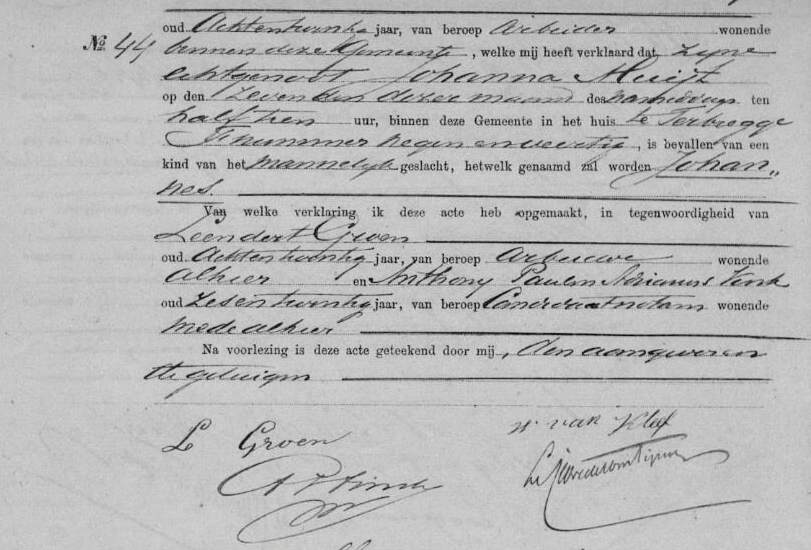 oud Achtentwintig jaar, van beroep Arbeider wonende
No. 44 binnen deze Gemeente, welke mij heeft verklaard dat zijne
echtgenoot Johanna Muijt
op den Zevenden dezer maand des namiddags ten
half tien uur, binnen deze Gemeente in het huis te Terbregge
nummer negen en veertig, is bevallen van een
kind van het mannelijk geslacht, hetwelk genaamd zal worden Johan„
nes.
Van welke verklaring ik deze acte heb opgemaakt, in tegenwoordigheid van
Leendert Groen
oud Achtentwintig jaar, van beroep Arbeider wonende
alhier en Anthony Paulus Adrianus
oud Zesentwintig jaar, van beroep wonende
mede alhier
Na voorlezing is deze acte geteekend door mij, den aangever en
de getuigen
L Groen
van Kleef